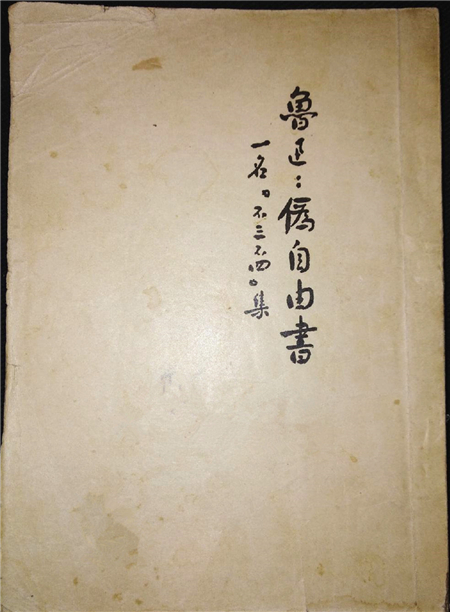 魯迅：偽自由書
一名：「不三不四」集